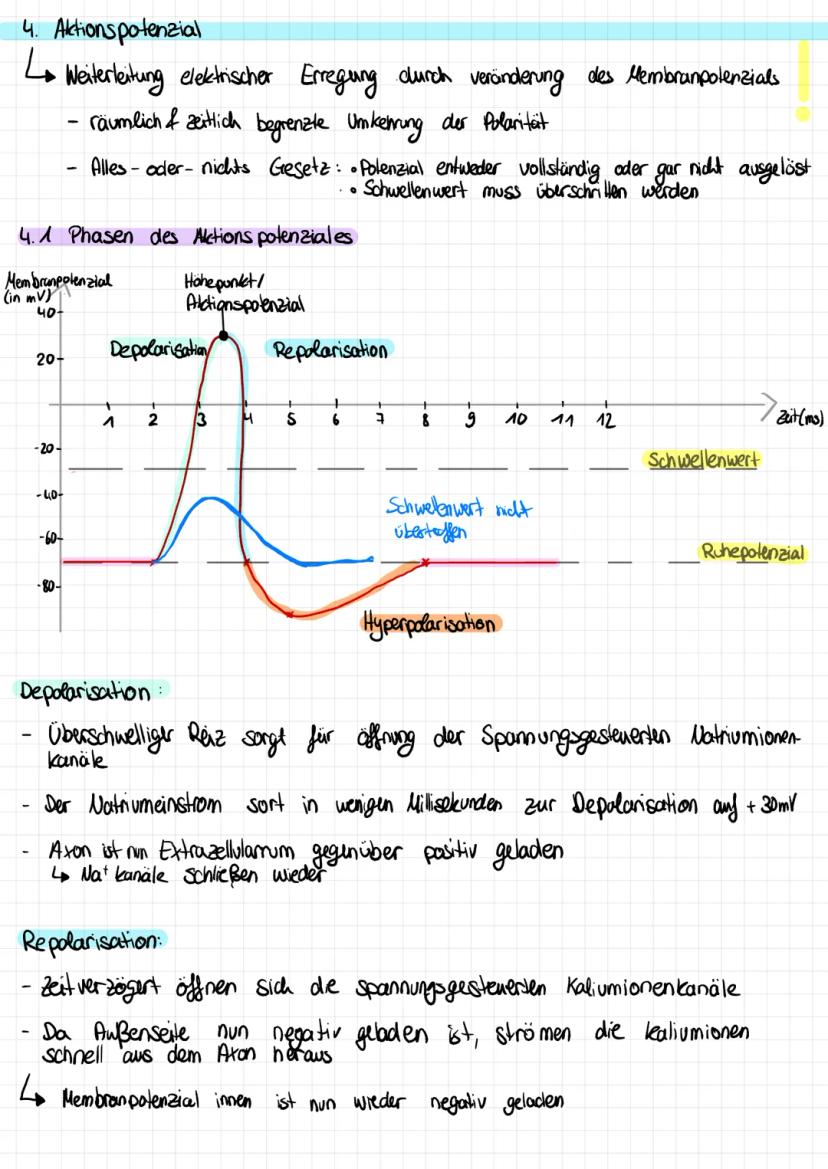 4. Aktionspotenzial
↳ Weiterleitung elektrischer Erregung durch veränderung des Membranpotenzials !
- räumlich & zeitlich begrenzte Umkehrung der Polarität
- Alles-oder-nichts Gesetz: • Potenzial entweder vollständig oder gar nicht ausgelöst
• Schwellenwert muss überschritten werden
4.1 Phasen des Aktionspotenziales
Membranpotenzial
(in mV)
Höhepunkt/
Aktionspotenzial
40
Depolarisation
Repolarisation
20
1 2 3 4 5 6 7 8 9 10 11 12
Zeit (ms)
-20
Schwellenwert
-40
Schwellenwert nicht
übertroffen
-60
Ruhepotenzial
-80
Hyperpolarisation
Depolarisation:
- Überschwelliger Reiz sorgt für öffnung der Spannungsgesteuerten Natriumionen-
kanäle
- Der Natriumeinstrom sort in wenigen Millisekunden zur Depolarisation auf +30mV
- Axon ist nun Extrazellularraum gegenüber positiv geladen
↳ Na⁺ kanäle schließen wieder
Repolarisation:
- Zeitverzögert öffnen sich die spannungsgesteuerten Kaliumionenkanäle
- Da Außenseite nun negativ geladen ist, strömen die kaliumionen
schnell aus dem Axon heraus
↳ Membranpotenzial innen ist nun wieder negativ geladen